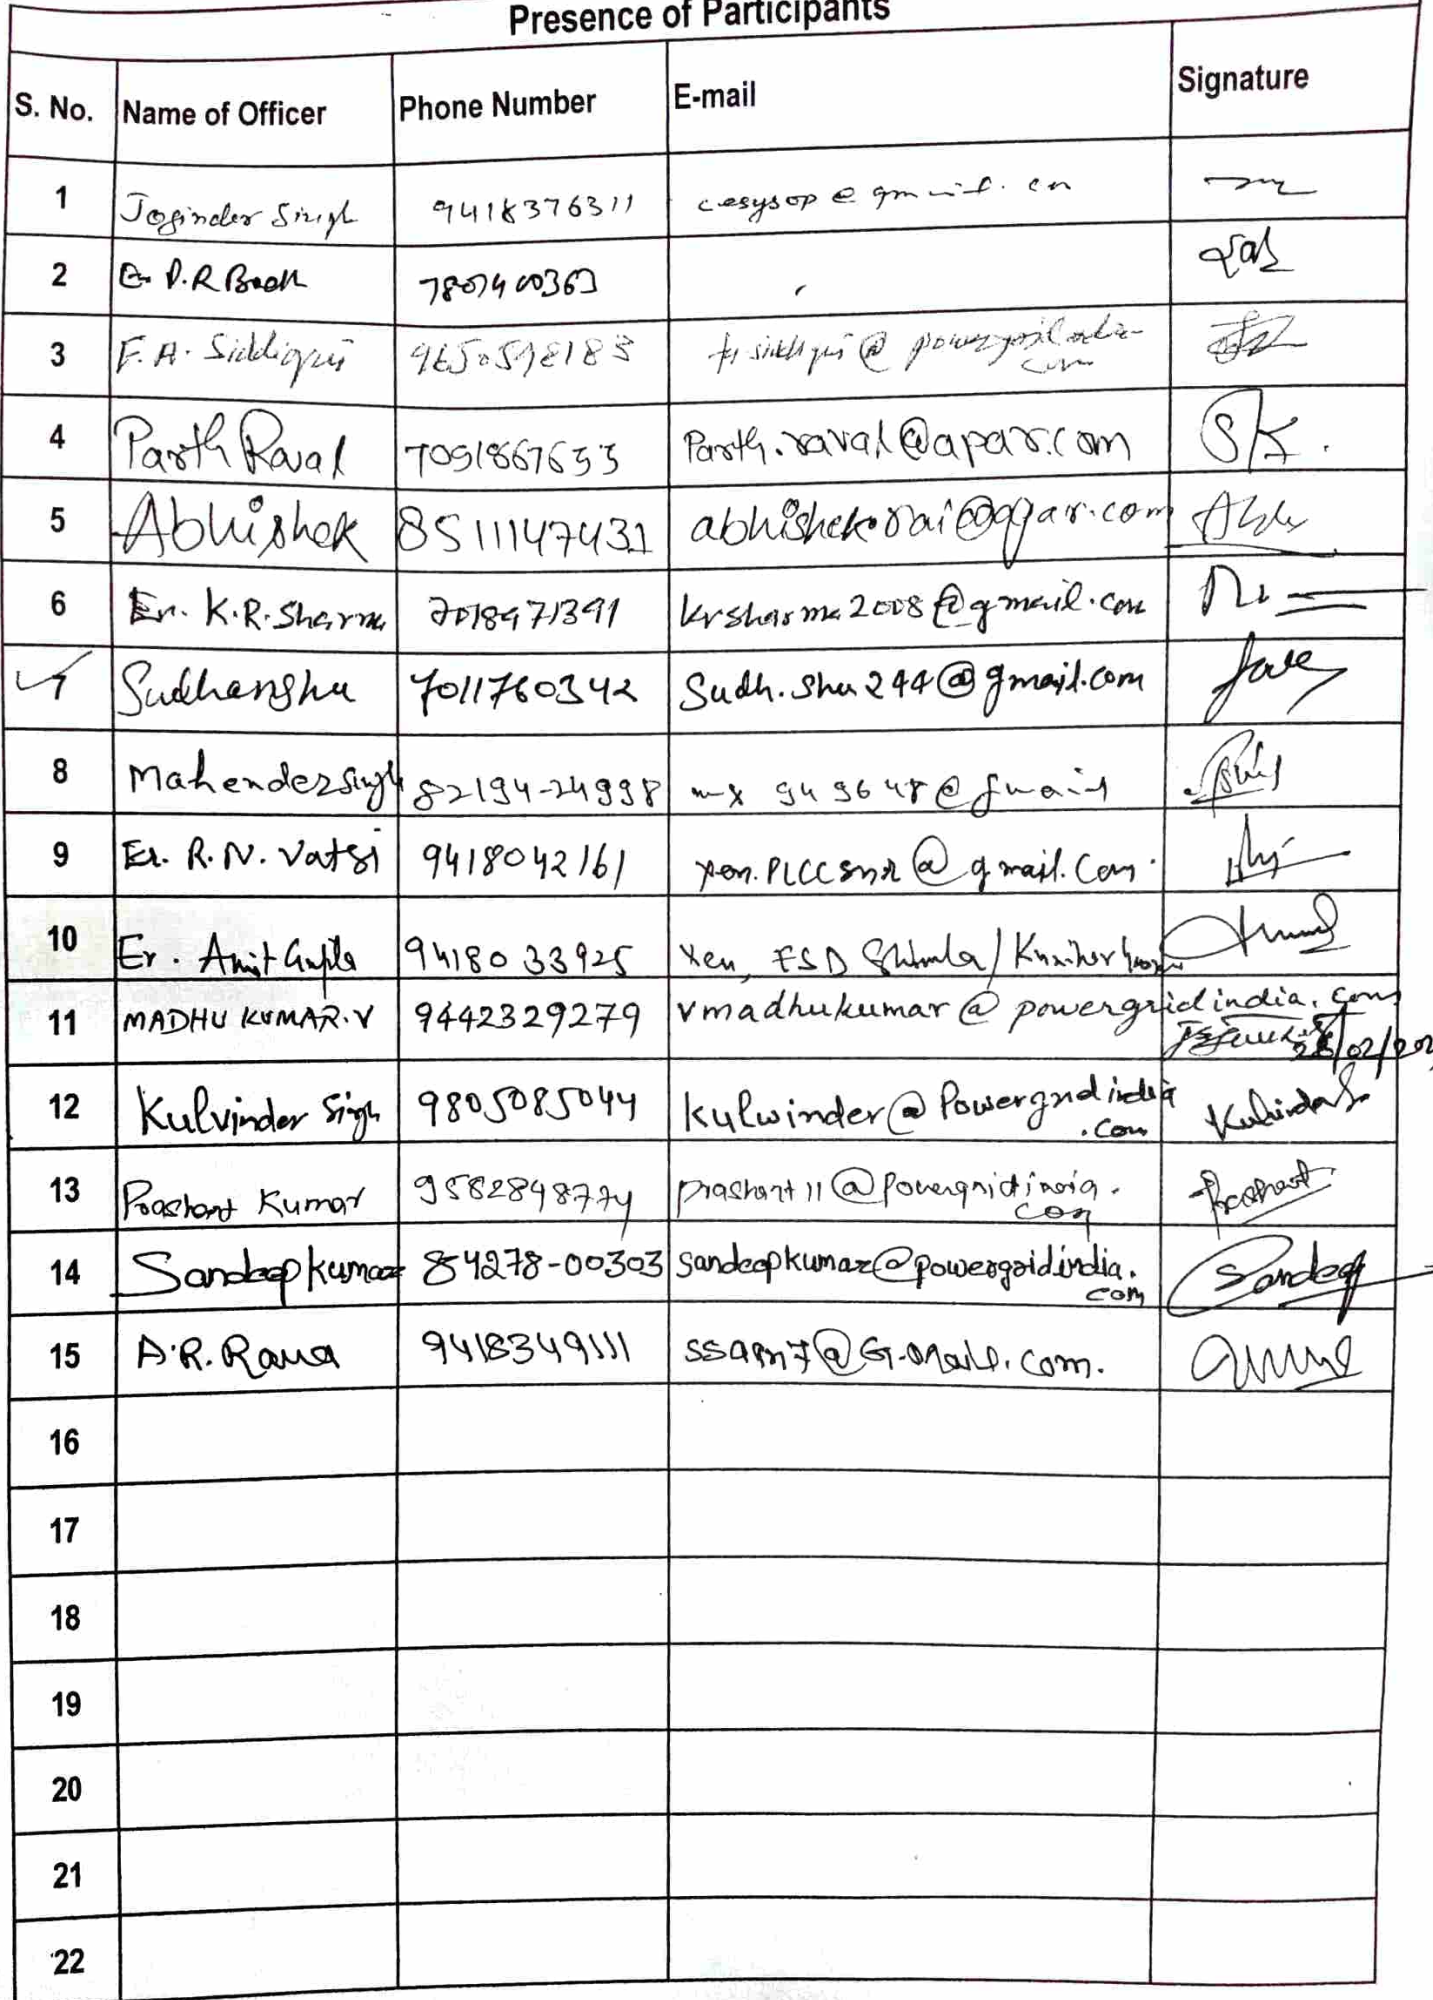 Presence of Participants
S. No. Name of Officer Phone Number E-mail Signature
1 Joginder Singh 9418376311 cesysop@
2 Er. P.R
3 F.A. Siddiqui 9650598183
4 Parth Raval 7051867653 Parth.raval@apar.com SK.
5 Abhishek 8511147431
6 Er. K.R. Sharma 7018971391 krsharma2008@gmail.com
7 Sudhanshu 7011760342 Sudh.shu244@gmail.com
8 Mahender Singh 82194-24998
9 Er. R.N. Vatsi 9418042161 xen.PLCCsmr@gmail.com
10 Er. Amit Gupta 9418033925 Xen, ESD Shimla/
11 MADHU KUMAR.V 9442329279 vmadhukumar@powergridindia.com
12 Kulvinder Sigh 9805085044 kulwinder@Powergridindia
.com
13 Prashant Kumar 9582848774 prashant11@powergridindia.
com Prashant
14 Sandeep kumar 84278-00303 sandeepkumar@powergridindia.
com Sandeep
15 A.R. Rana 9418349111
16
17
18
19
20
21
22